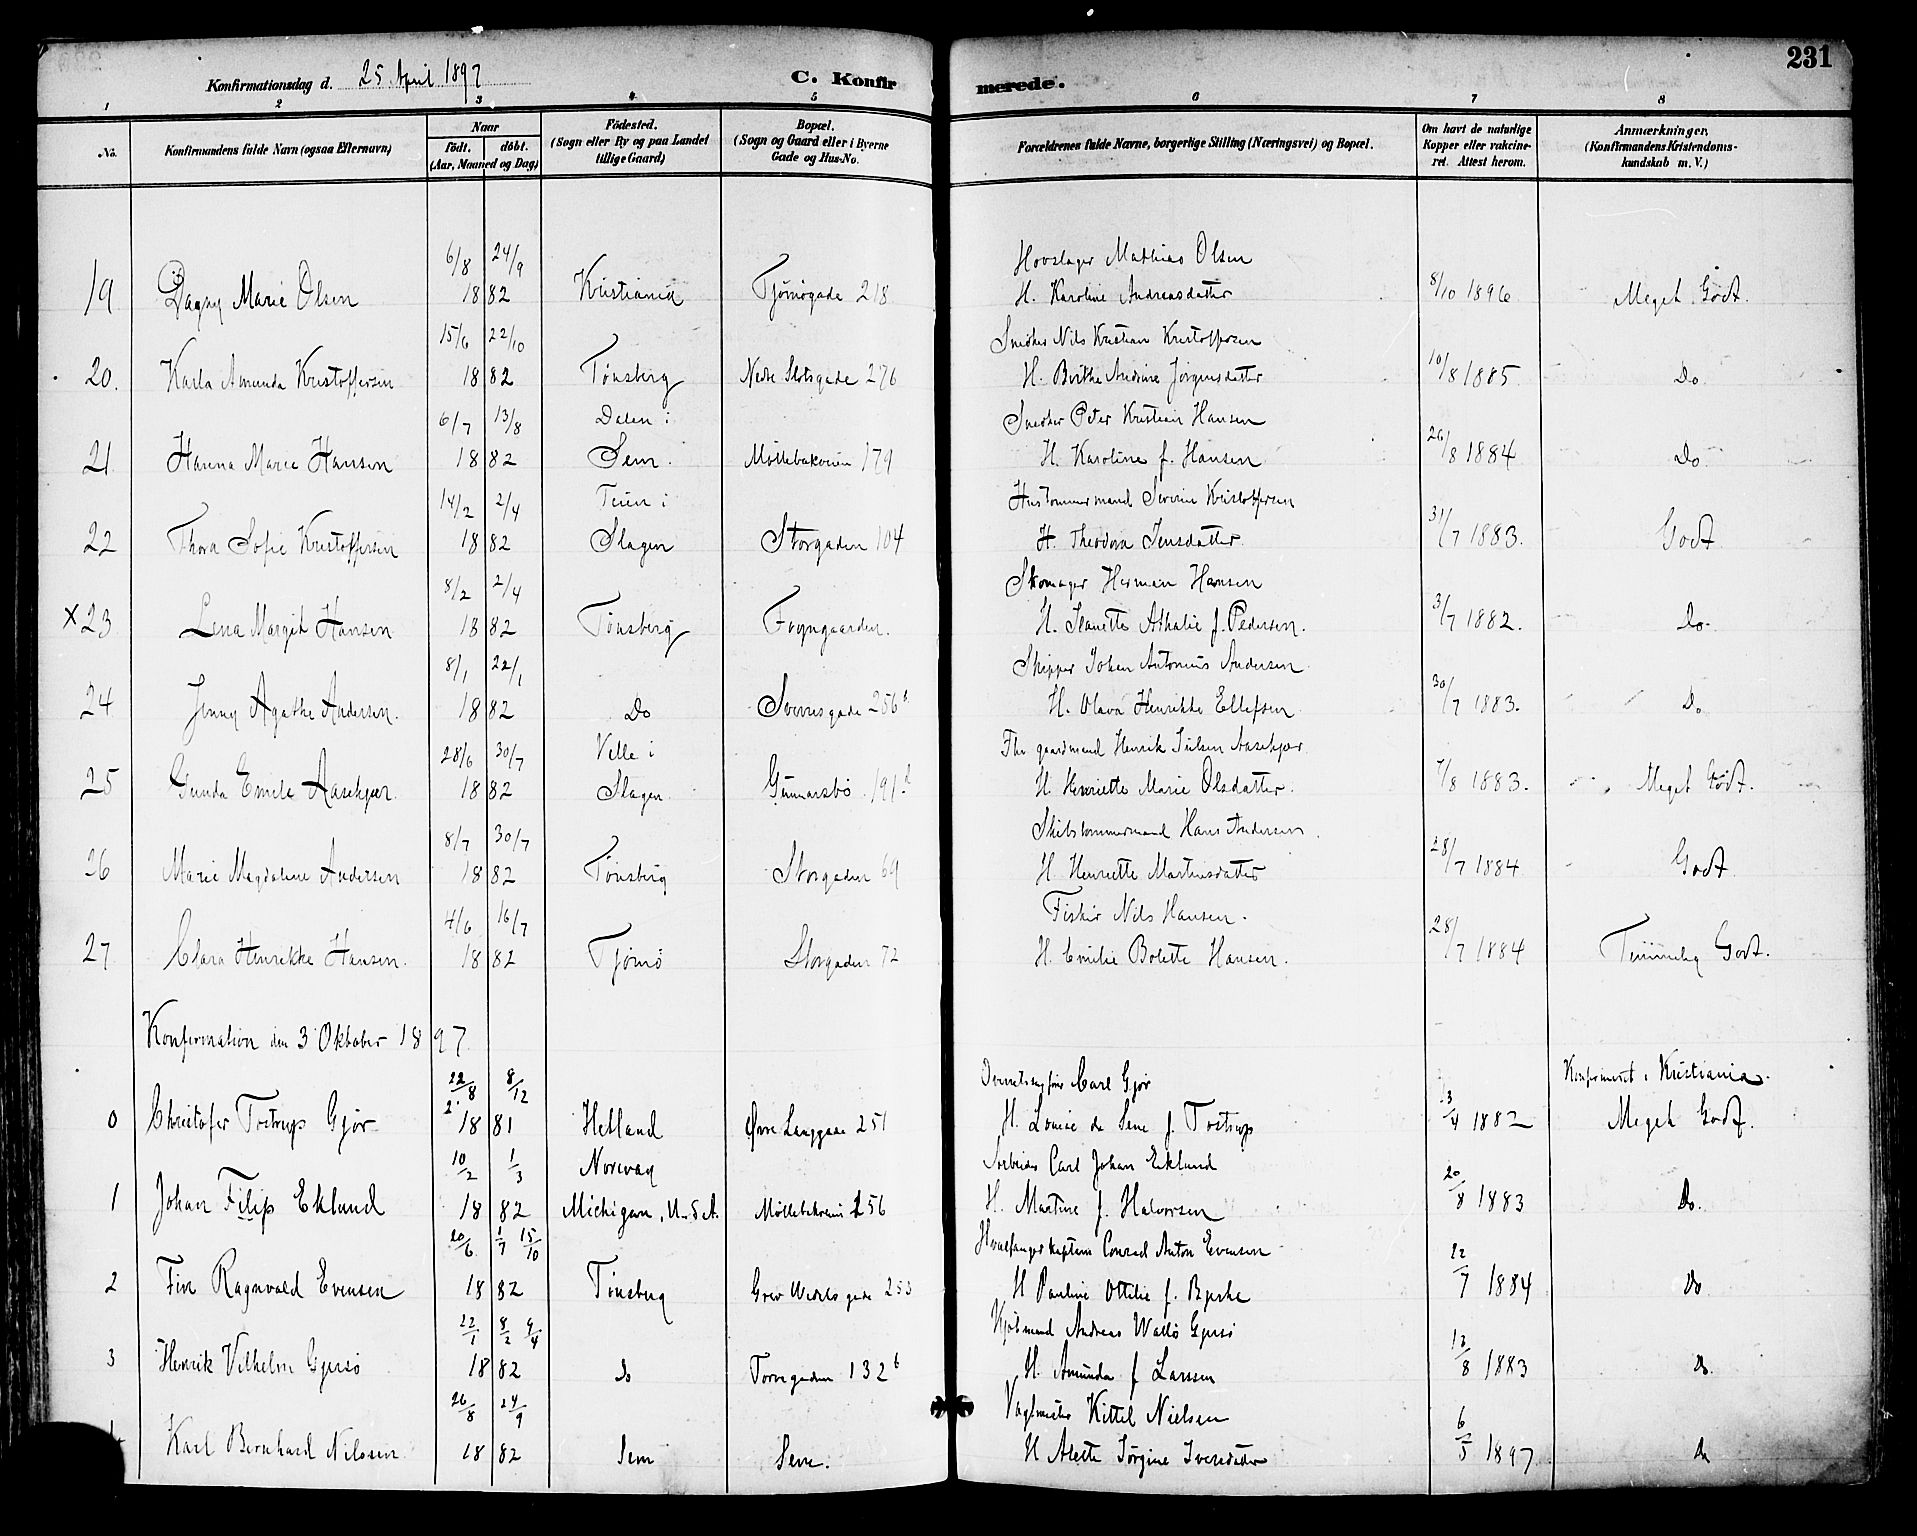 231
Konfirmationsdag d. 25. April 1897 C. Konfirmerede.
1 2 3 4 5 6 7 8
No. Konfirmandens fulde Navn (ogsaa Efternavn) Naar født. døbt. (Aar, Maaned og Dag) Fødested. (Sogn eller By og paa Landet tillige Gaard) Bopæl. (Sogn og Gaard eller i Byerne Gade og Hus-No. Forældrenes fulde Navne, borgerlige Stilling (Næringsvei) og Bopæl. Om havt de naturlige Kopper eller vakcineret. Attest herom. Anmærkninger. (Konfirmandens Kristendomskundskab m. V.)
6/8 24/9 Hovslager Mathias Olsen
19 Dagny Marie Olsen 1882 Kristiania Tjømøgade 218 H. Karoline Andreasdatter 8/10 1896 Meget Godt.
15/6 22/10 Snedker Nils Kristian Kristoffersen
20. Karla Amunda Kristoffersen 1882 Tønsberg Nedre Slotsgade 276 H. Berthe Andrine Jørgensdatter 10/8 1885 Do
6/7 13/8 Dalen i Snedker Peter Kristian Hansen
21 Hanna Marie Hansen 1882 Sem. Møllebakveien 179 H. Karoline f. Hansen 26/8 1884 Do
14/2 2/4 Teien i Hustømmermand Severin Kristoffersen
22 Thora Sofie Kristoffersen 1882 Slagen Storgaden 104 H. Theodora Jensdatter 31/7 1883. Godt
8/2 2/4 Skomager Herman Hansen
x 23 Lena Margit Hansen 1882 Tønsberg Fogngaarden. H. Jeanette Athalie f. Pedersen. 3/7 1882. Do.
8/1 22/1 Skipper Johan Antonius Andersen
24 Jenny Agathe Andersen. 1882 Do Sverresgade 256 H. Olava Henrikke Ellefsen 30/7 1883. Do
28/6 30/7 Velle i Fhv gaardmand Henrik Julsen Aasekjær
25 Gunda Emile Aasekjær. 1882 Slagen Gunnarsbø 191 H. Henriette Marie Olsdatter. 7/8 1883. Meget Godt.
8/7 30/7 Skibstømmermand Hans Andersen.
26 Marie Magdalene Andersen 1882 Tønsberg Storgaden 69 H. Henriette Martinsdatter 28/7 1884 Godt
4/6 16/7 Fisker Nils Hansen.
27 Clara Henrikke Hansen. 1882 Tjømø Storgaden 72 H. Emilie Bolette Hansen. 28/7 1884 Temmelig Godt.
Konfirmation den 3 Oktober 1897
22/8 8/12 Carl Gjør Konfirmeret i Kristiania.
0 Christofer Tostrup Gjør 1881 Hetland Øvre Langgade 251 H. Louise de Seve f. Tostrup 13/4 1882 Meget Godt.
10/2 1/3 Norway Carl Johan Eklund
1 Johan Filip Eklund 1882 Michigan, U. S. A. Møllebakveien 256 H. Martine f. Halvorsen 20/8 1883 Do.
20/6 1/7 15/10 Hvalfangerkaptein Conrad Anton Evensen
2 Finn Ragnvald Evensen 1882 Tønsberg Grev Wedels gade 253 H Pauline Ottilie f. Bjerke 12/7 1884 Do
22/1 8/2 9/4 Kjøbmand Andreas Wallø Gjersø
3 Henrik Vilhelm Gjersø 1882 Do Torvegaden 132 b H. Amunda f Larssen 13/8 1883 Do.
26/8 24/9 Vagtmester Kittil Nielsen
Karl Bernhard Nilssen 1882 Sem Sem. H Alette Jørgine Iversdatter 6/5 1897 Do